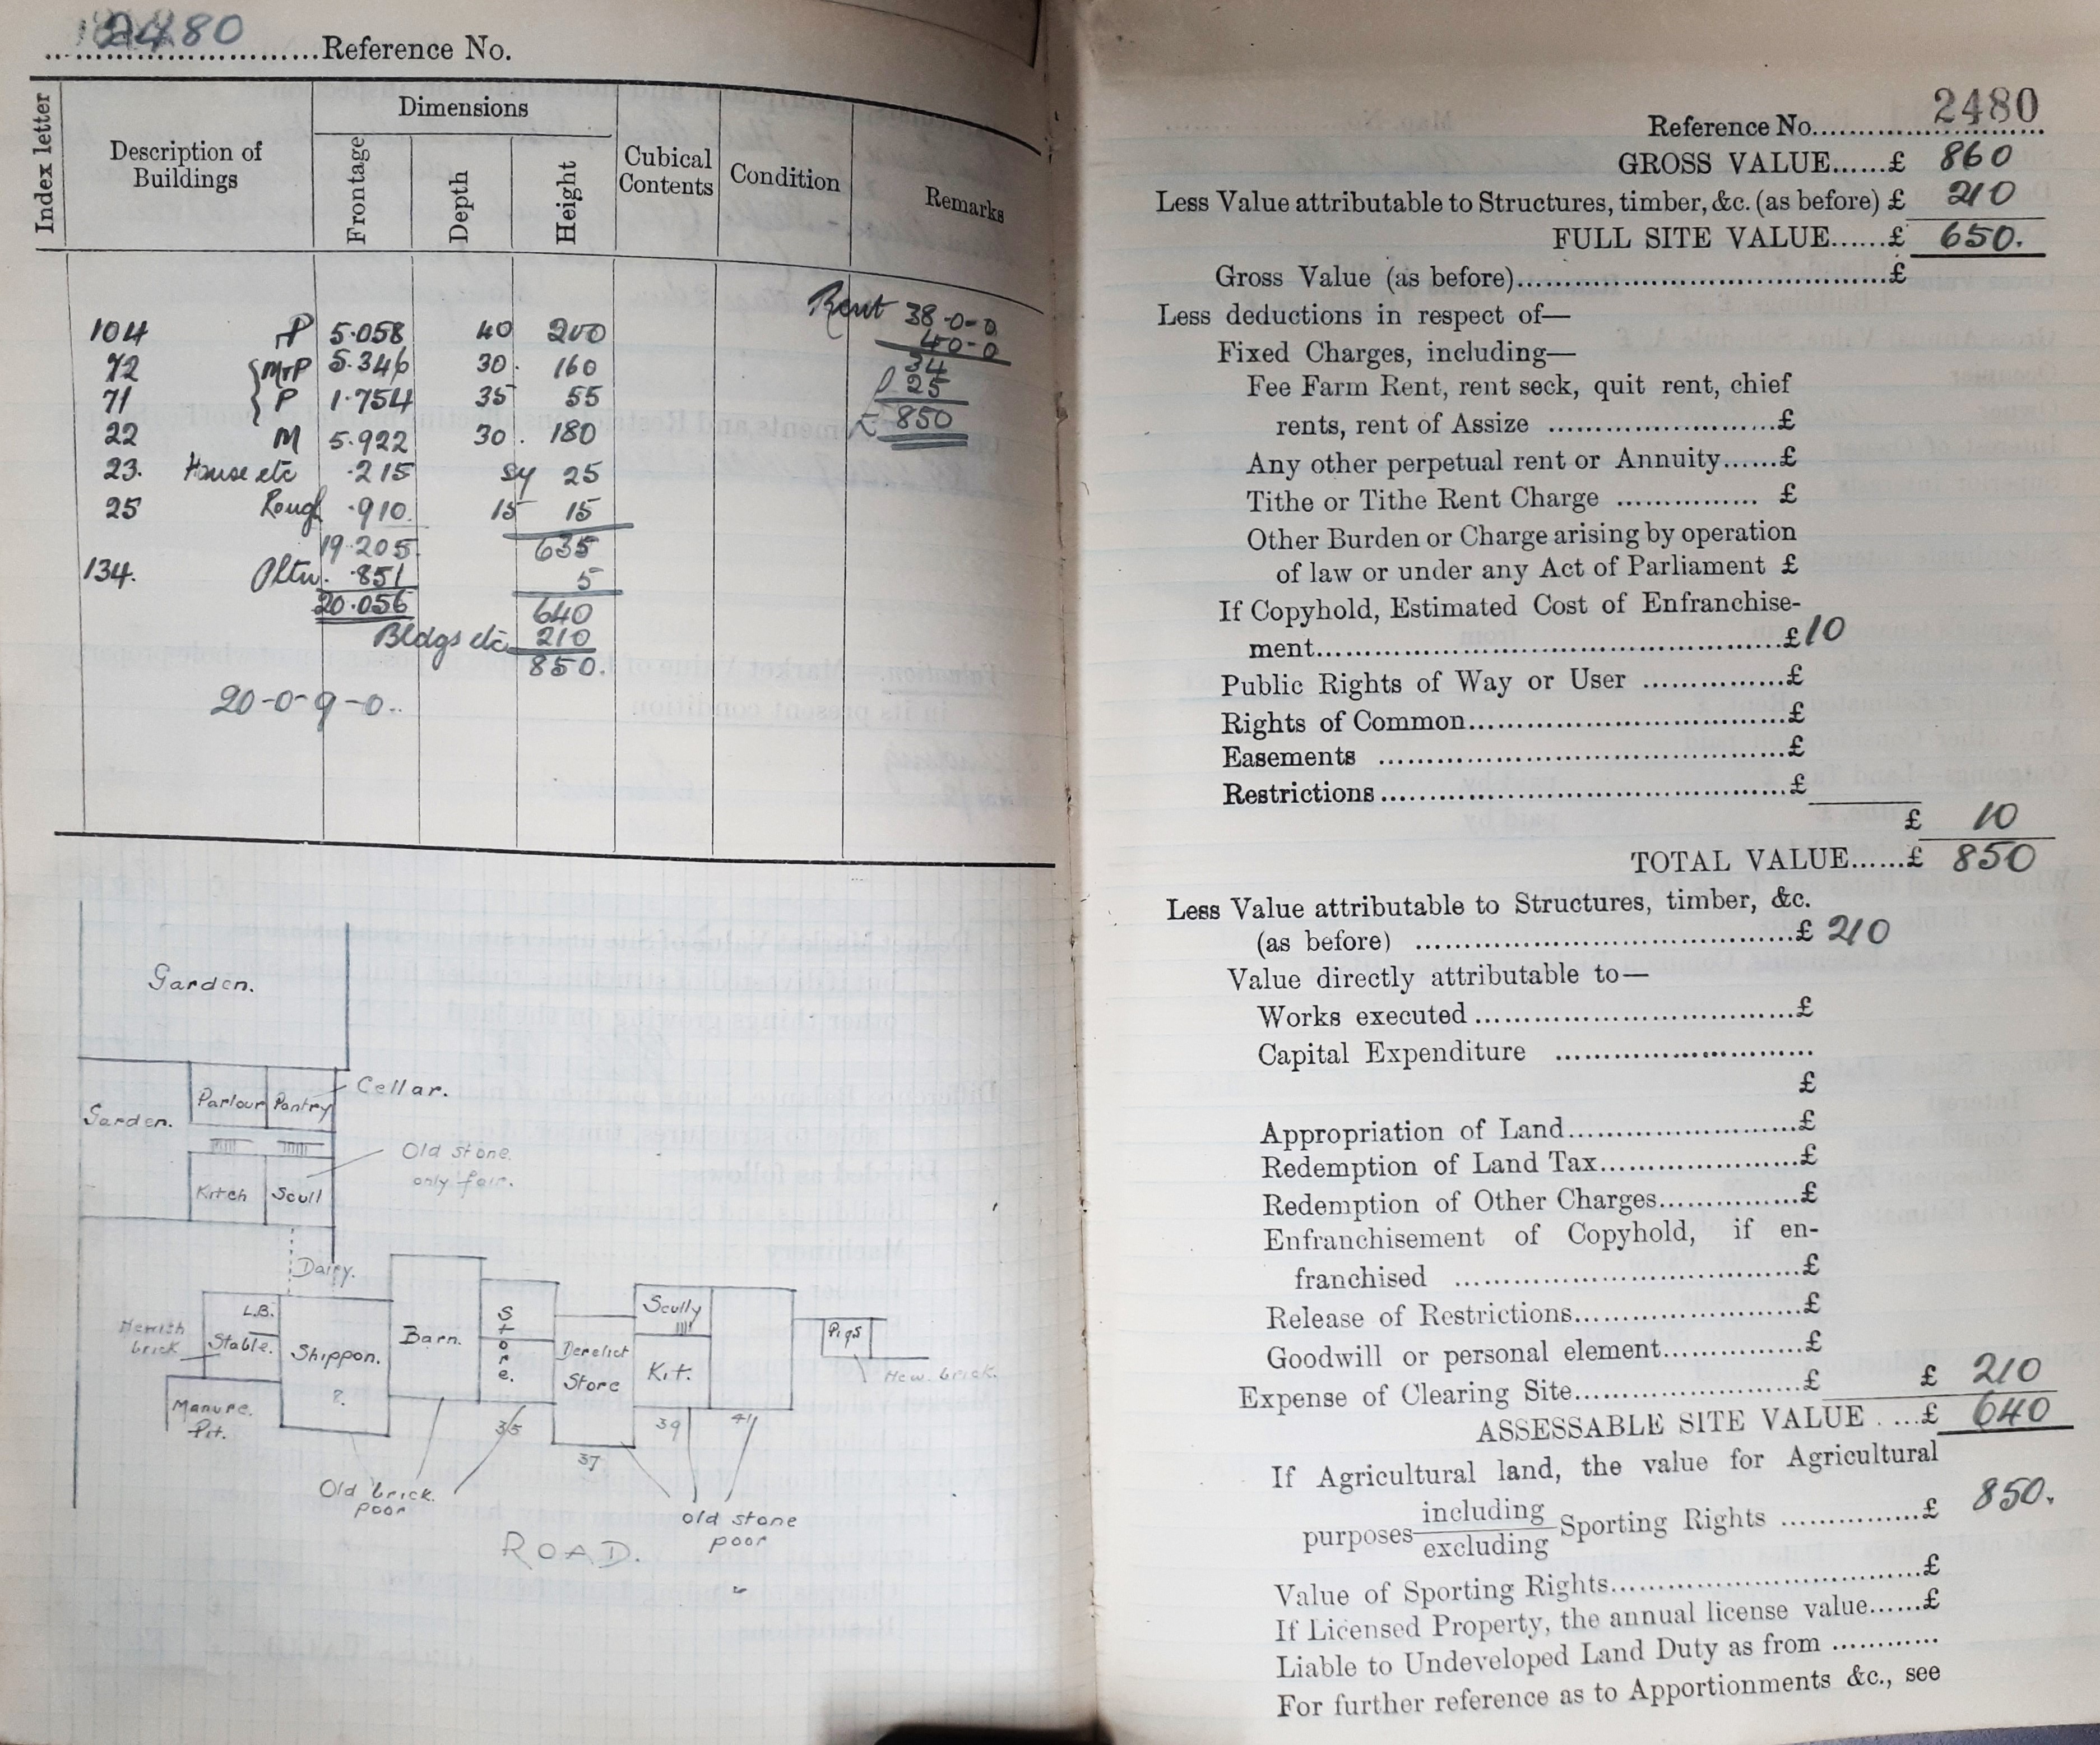 2480
Reference No.
Index letter
Description of Buildings
Dimensions
Frontage
Depth
Height
Cubical Contents
Condition
Remarks
Rent 38-0-0
40-0
34
25
£ 850
104 P 5.058 40 200
72 M+P 5.346 30. 160
71 P 1.754 35 55
22 M 5.922 30. 180
23. House etc .215 sy 25
25 Rough .910 15 15
19.205 635
134. Pltn. .851 5
20.056 640
Bldgs etc 210
850.
20-0-9-0..
Garden.
Cellar.
Parlour Pantry
Garden.
Old stone
only fair.
Kitch Scull
Dairy.
L.B.
Stable.
brick
Shippon.
?
Manure.
Pit.
Barn.
Store.
Derelict
Store
Scully
Kit.
Pigs
New. brick.
35
37
39
41
Old brick.
poor
old stone
poor
ROAD.
Reference No. 2480
GROSS VALUE......£ 860
Less Value attributable to Structures, timber, &c. (as before) £ 210
FULL SITE VALUE......£ 650.
Gross Value (as before)...£
Less deductions in respect of—
Fixed Charges, including—
Fee Farm Rent, rent seck, quit rent, chief
rents, rent of Assize ...£
Any other perpetual rent or Annuity......£
Tithe or Tithe Rent Charge ... £
Other Burden or Charge arising by operation
of law or under any Act of Parliament £
If Copyhold, Estimated Cost of Enfranchise-
ment...£10
Public Rights of Way or User ...£
Rights of Common...£
Easements ...£
Restrictions...£
£ 10
TOTAL VALUE......£ 850
Less Value attributable to Structures, timber, &c.
(as before) ...£ 210
Value directly attributable to—
Works executed...£
Capital Expenditure ...
£
Appropriation of Land...£
Redemption of Land Tax...£
Redemption of Other Charges...£
Enfranchisement of Copyhold, if en-
franchised ...£
Release of Restrictions...£
Goodwill or personal element...£
Expense of Clearing Site...£ £ 210
ASSESSABLE SITE VALUE ....£ 640
If Agricultural land, the value for Agricultural
purposes including
excluding Sporting Rights ...£ 850.
Value of Sporting Rights...£
If Licensed Property, the annual license value......£
Liable to Undeveloped Land Duty as from ...
For further reference as to Apportionments &c., see